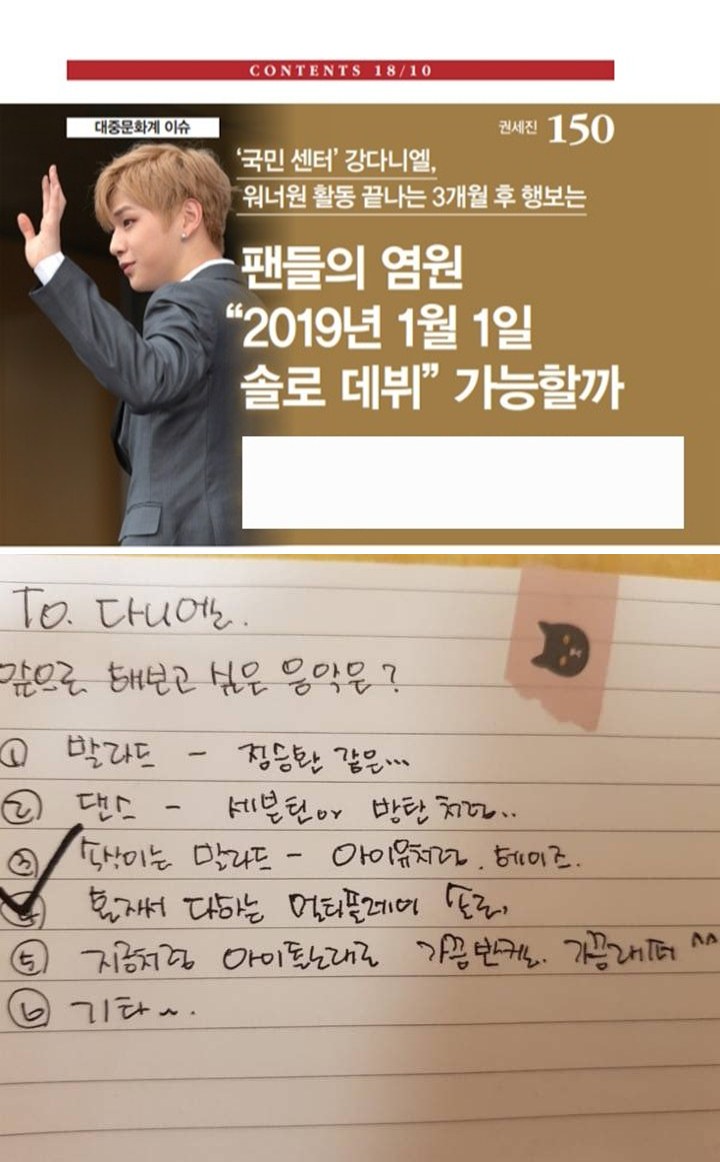 CONTENTS 18/10
대중문화계 이슈
권세진 150
‘국민 센터’ 강다니엘,
워너원 활동 끝나는 3개월 후 행보는
팬들의 염원
“2019년 1월 1일
솔로 데뷔” 가능할까
To. 다니엘.
앞으로 해보고 싶은 음악은?
① 발라드 - 정승환 같은...
② 댄스 - 세븐틴or 방탄처럼..
③ 속삭이는 발라드 - 아이유처럼. 헤이즈.
④ 혼자서 다하는 멀티플레이어 솔로,
⑤ 지금처럼 아이돌노래로 가끔반케노. 가끔래퍼 ^^
⑥ 기타~.